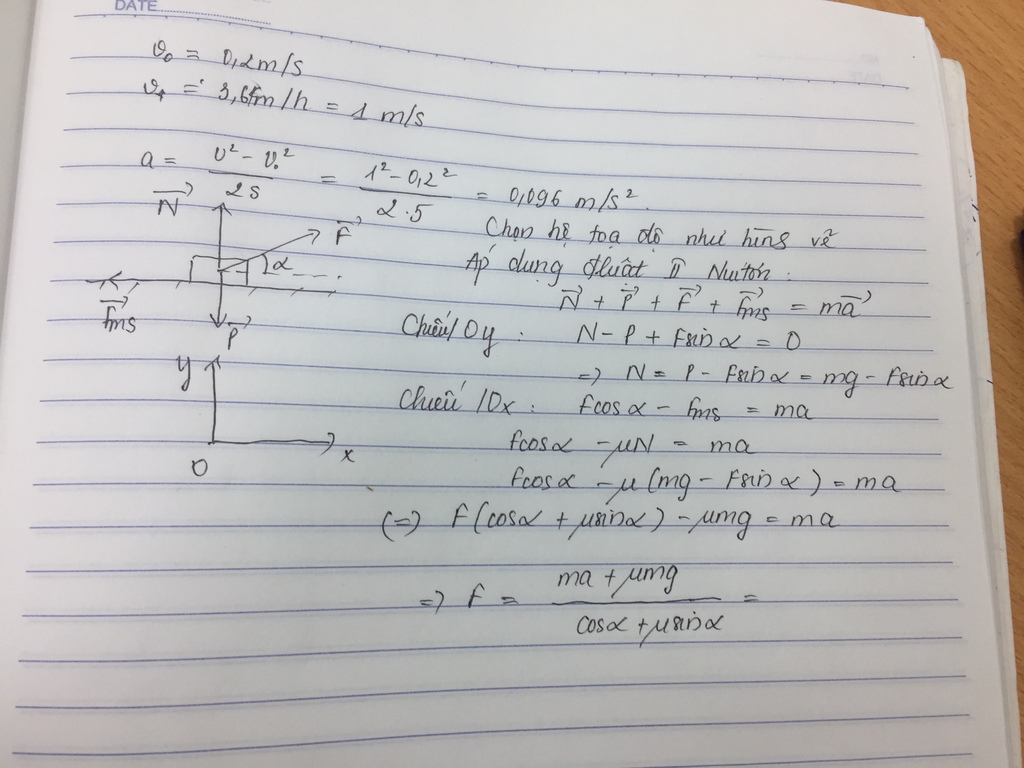 DATE
v₀ = 0,2m/s
v₁ = 3,6km/h = 1 m/s
a = (v² - v₀²)/2s = (1² - 0,2²)/(2.5) = 0,096 m/s²
Chọn hệ tọa độ như hình vẽ
Áp dụng định luật II Niutơn:
N→ + P→ + F→ + Fms→ = ma→
Chiếu/Oy : N - P + Fsinα = 0
=> N = P - Fsinα = mg - Fsinα
Chiếu/Ox : Fcosα - fms = ma
Fcosα - μN = ma
Fcosα - μ(mg - Fsinα) = ma
(=) F(cosα + μsinα) - μmg = ma
=> F = (ma + μmg)/(cosα + μsinα) =
N→
F→
α
fms→
P→
y
O
x